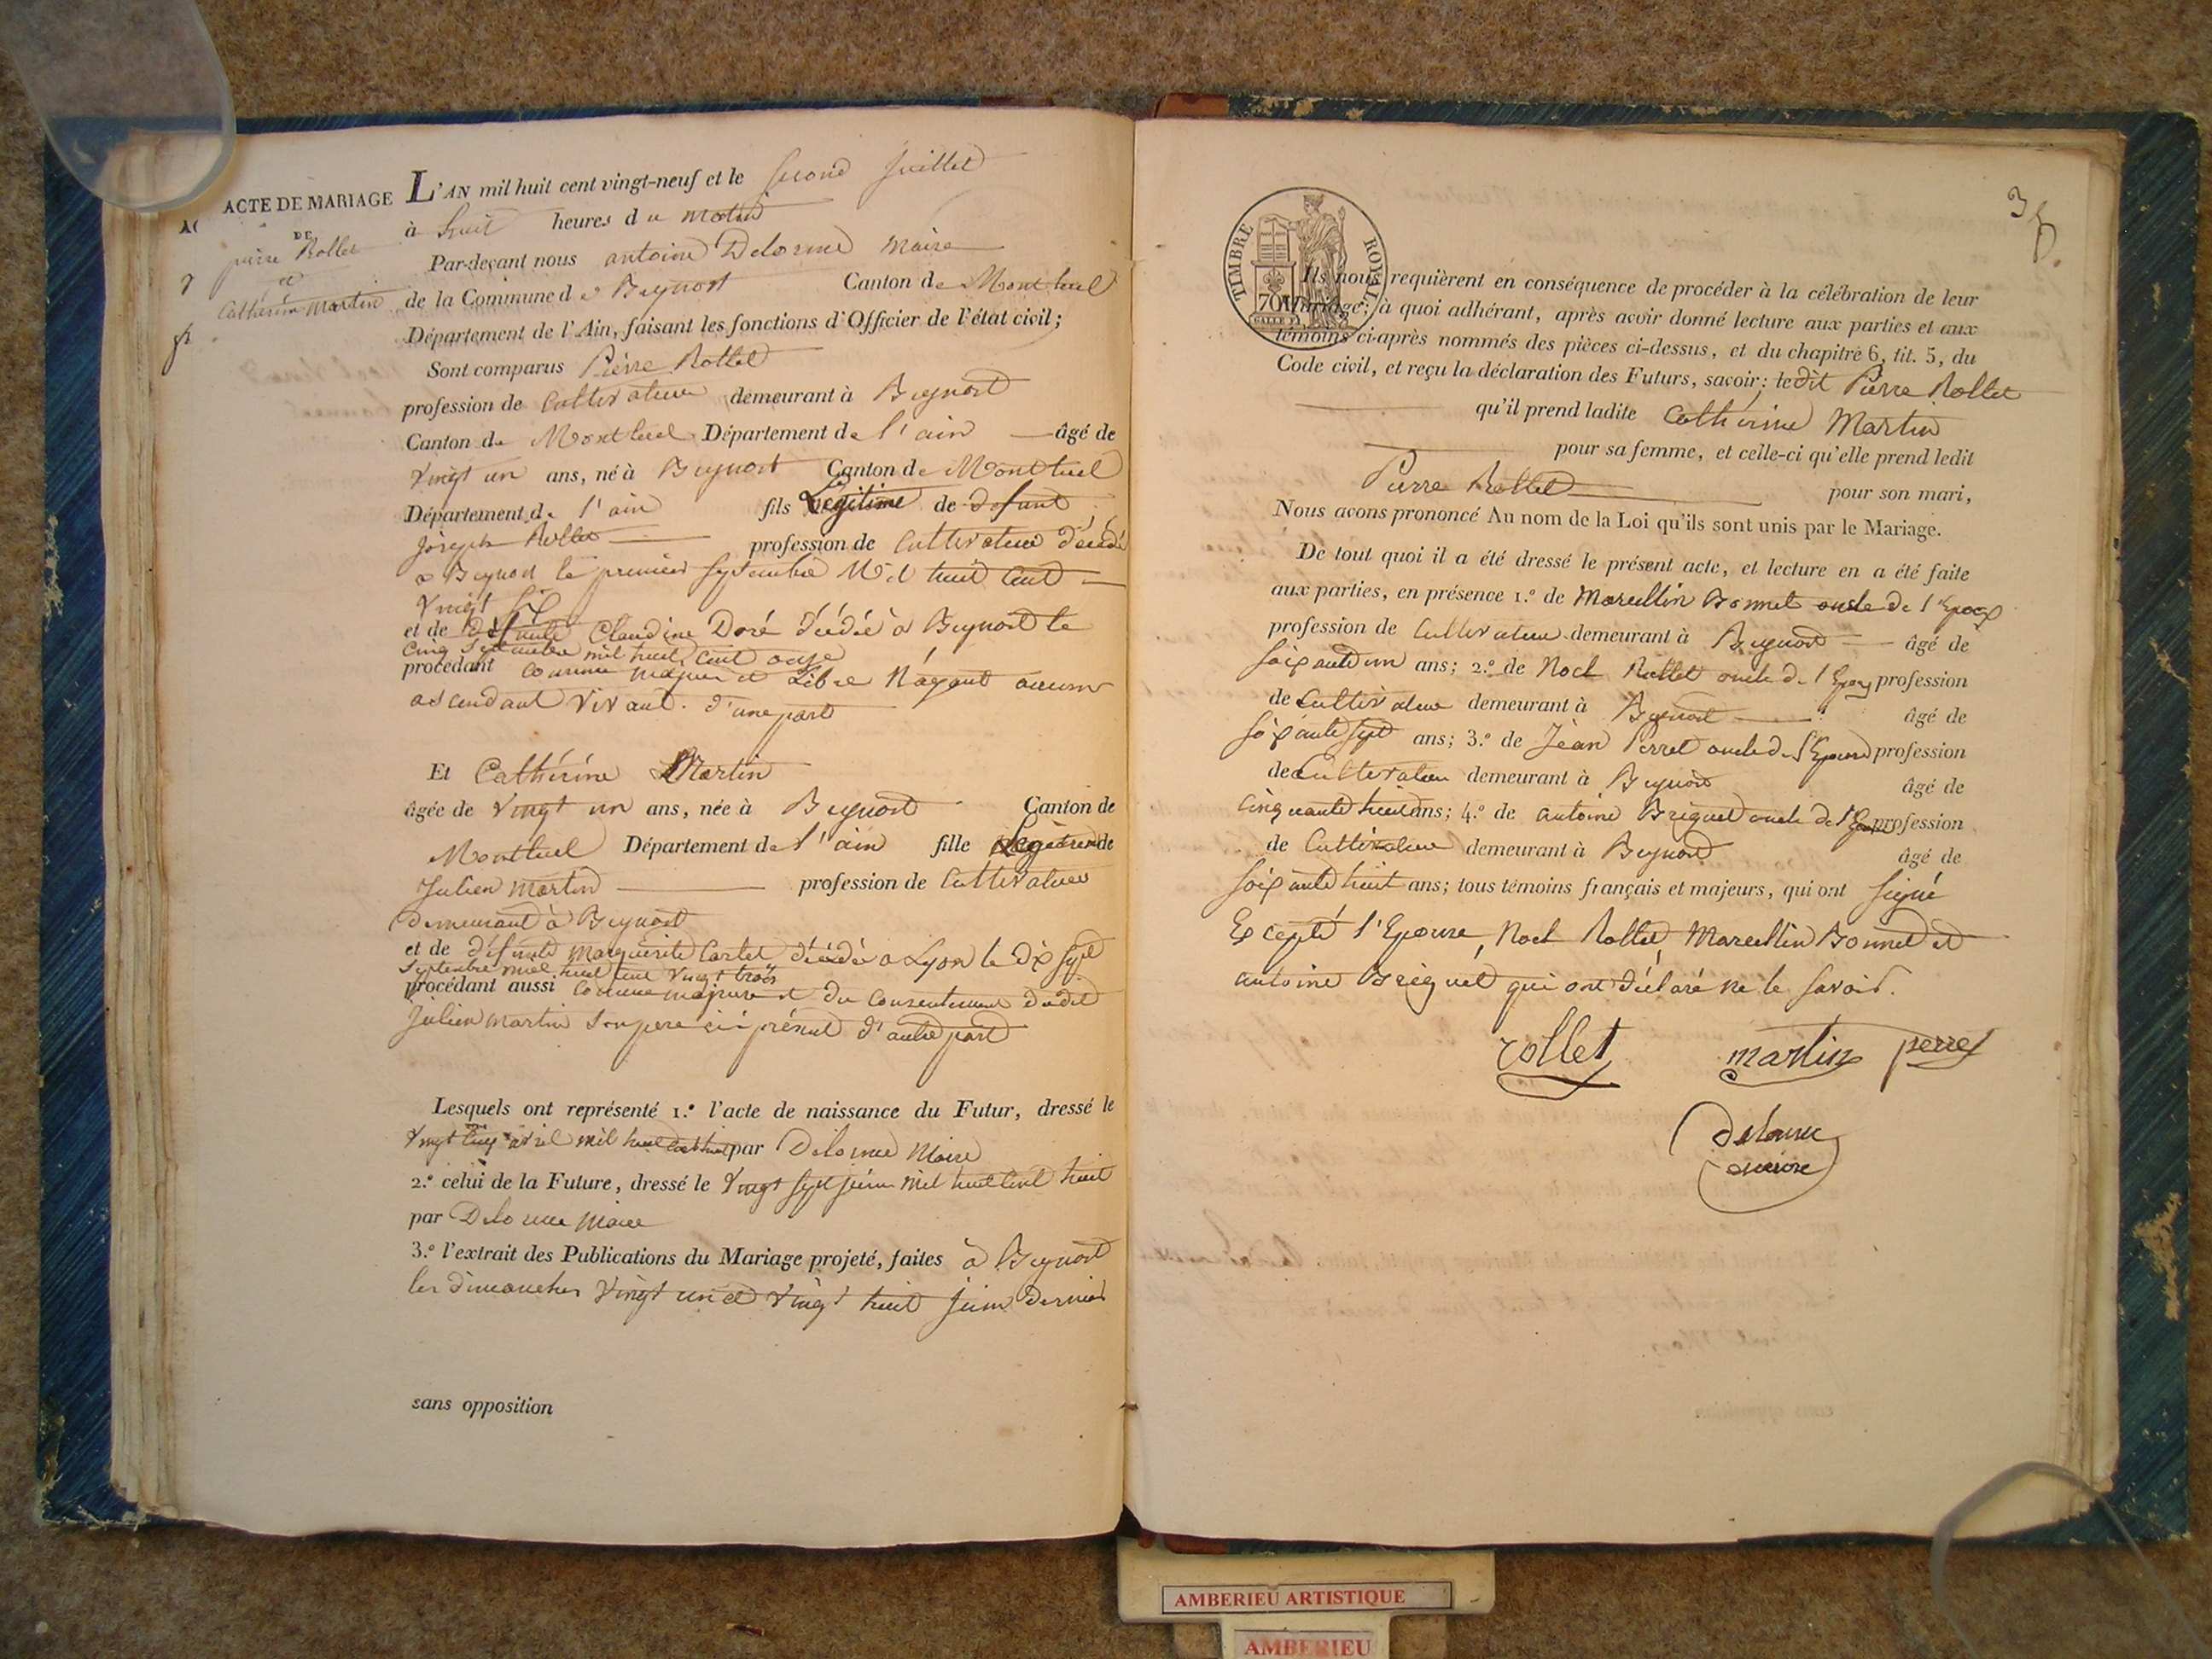 ACTE DE MARIAGE
DE
pierre Rollet
et
Catherine Martin
L'AN mil huit cent vingt-neuf et le second Juillet
à huit heures du matin
Par-devant nous antoine Delorme Maire
de la Commune de Beynost Canton de Montluel
Département de l'Ain, faisant les fonctions d'Officier de l'état civil;
Sont comparus Pierre Rollet
profession de Cultivateur demeurant à Beynost
Canton de Montluel Département de l'ain âgé de
vingt un ans, né à Beynost Canton de Montluel
Département de l'ain fils Légitime de defunt
Joseph Rollet profession de Cultivateur décédé
a Beynost le premier septembre Mil huit cent
vingt six
et de défunte Claudine Doré décédée à Beynost le
cinq septembre mil huit cent onze
procédant comme majeur et Libre N'ayant aucun
ascendant vivant. d'une part
Et Cathérine Martin
âgée de vingt un ans, née à Beynost Canton de
Montluel Département de l'ain fille Légitime de
Julien Martin profession de Cultivateur
demeurant à Beynost
et de défunte Marguerite Cartet décédée a Lyon le dix sept
septembre mil huit cent vingt trois
procédant aussi comme majeure et du consentement dudit
Julien Martin son pere ici présent d'autre part
Lesquels ont représenté 1.º l'acte de naissance du Futur, dressé le
vingt cinq avril mil huit cent huit par Delorme Maire
2.º celui de la Future, dressé le vingt sept juin mil huit cent huit
par Delorme Maire
3.º l'extrait des Publications du Mariage projeté, faites à Beynost
les dimanches vingt un et vingt huit juin dernier
sans opposition
TIMBRE ROYAL
70
Ils nous requièrent en conséquence de procéder à la célébration de leur
Mariage; à quoi adhérant, après avoir donné lecture aux parties et aux
témoins ci-après nommés des pièces ci-dessus, et du chapitre 6, tit. 5, du
Code civil, et reçu la déclaration des Futurs, savoir; ledit Pierre Rollet
qu'il prend ladite Catherine Martin
pour sa femme, et celle-ci qu'elle prend ledit
Pierre Rollet pour son mari,
Nous avons prononcé Au nom de la Loi qu'ils sont unis par le Mariage.
De tout quoi il a été dressé le présent acte, et lecture en a été faite
aux parties, en présence 1.º de Marcellin Bonnet oncle de l'Epoux
profession de Cultivateur demeurant à Beynost âgé de
soixante un ans; 2.º de Noel Rollet oncle de l'Epoux profession
de Cultivateur demeurant à Beynost âgé de
soixante sept ans; 3.º de Jean Perret oncle de l'Epouse profession
de Cultivateur demeurant à Beynost âgé de
cinquante huit ans; 4.º de antoine Briguet oncle de l'Epouse profession
de Cultivateur demeurant à Beynost âgé de
soixante huit ans; tous témoins français et majeurs, qui ont signé
Excepté l'Epouse, Noel Rollet, Marcellin Bonnet et
antoine Briguet qui ont déclaré ne le savoir.
rollet martin perret
Delorme
maire
AMBERIEU ARTISTIQUE
AMBERIEU